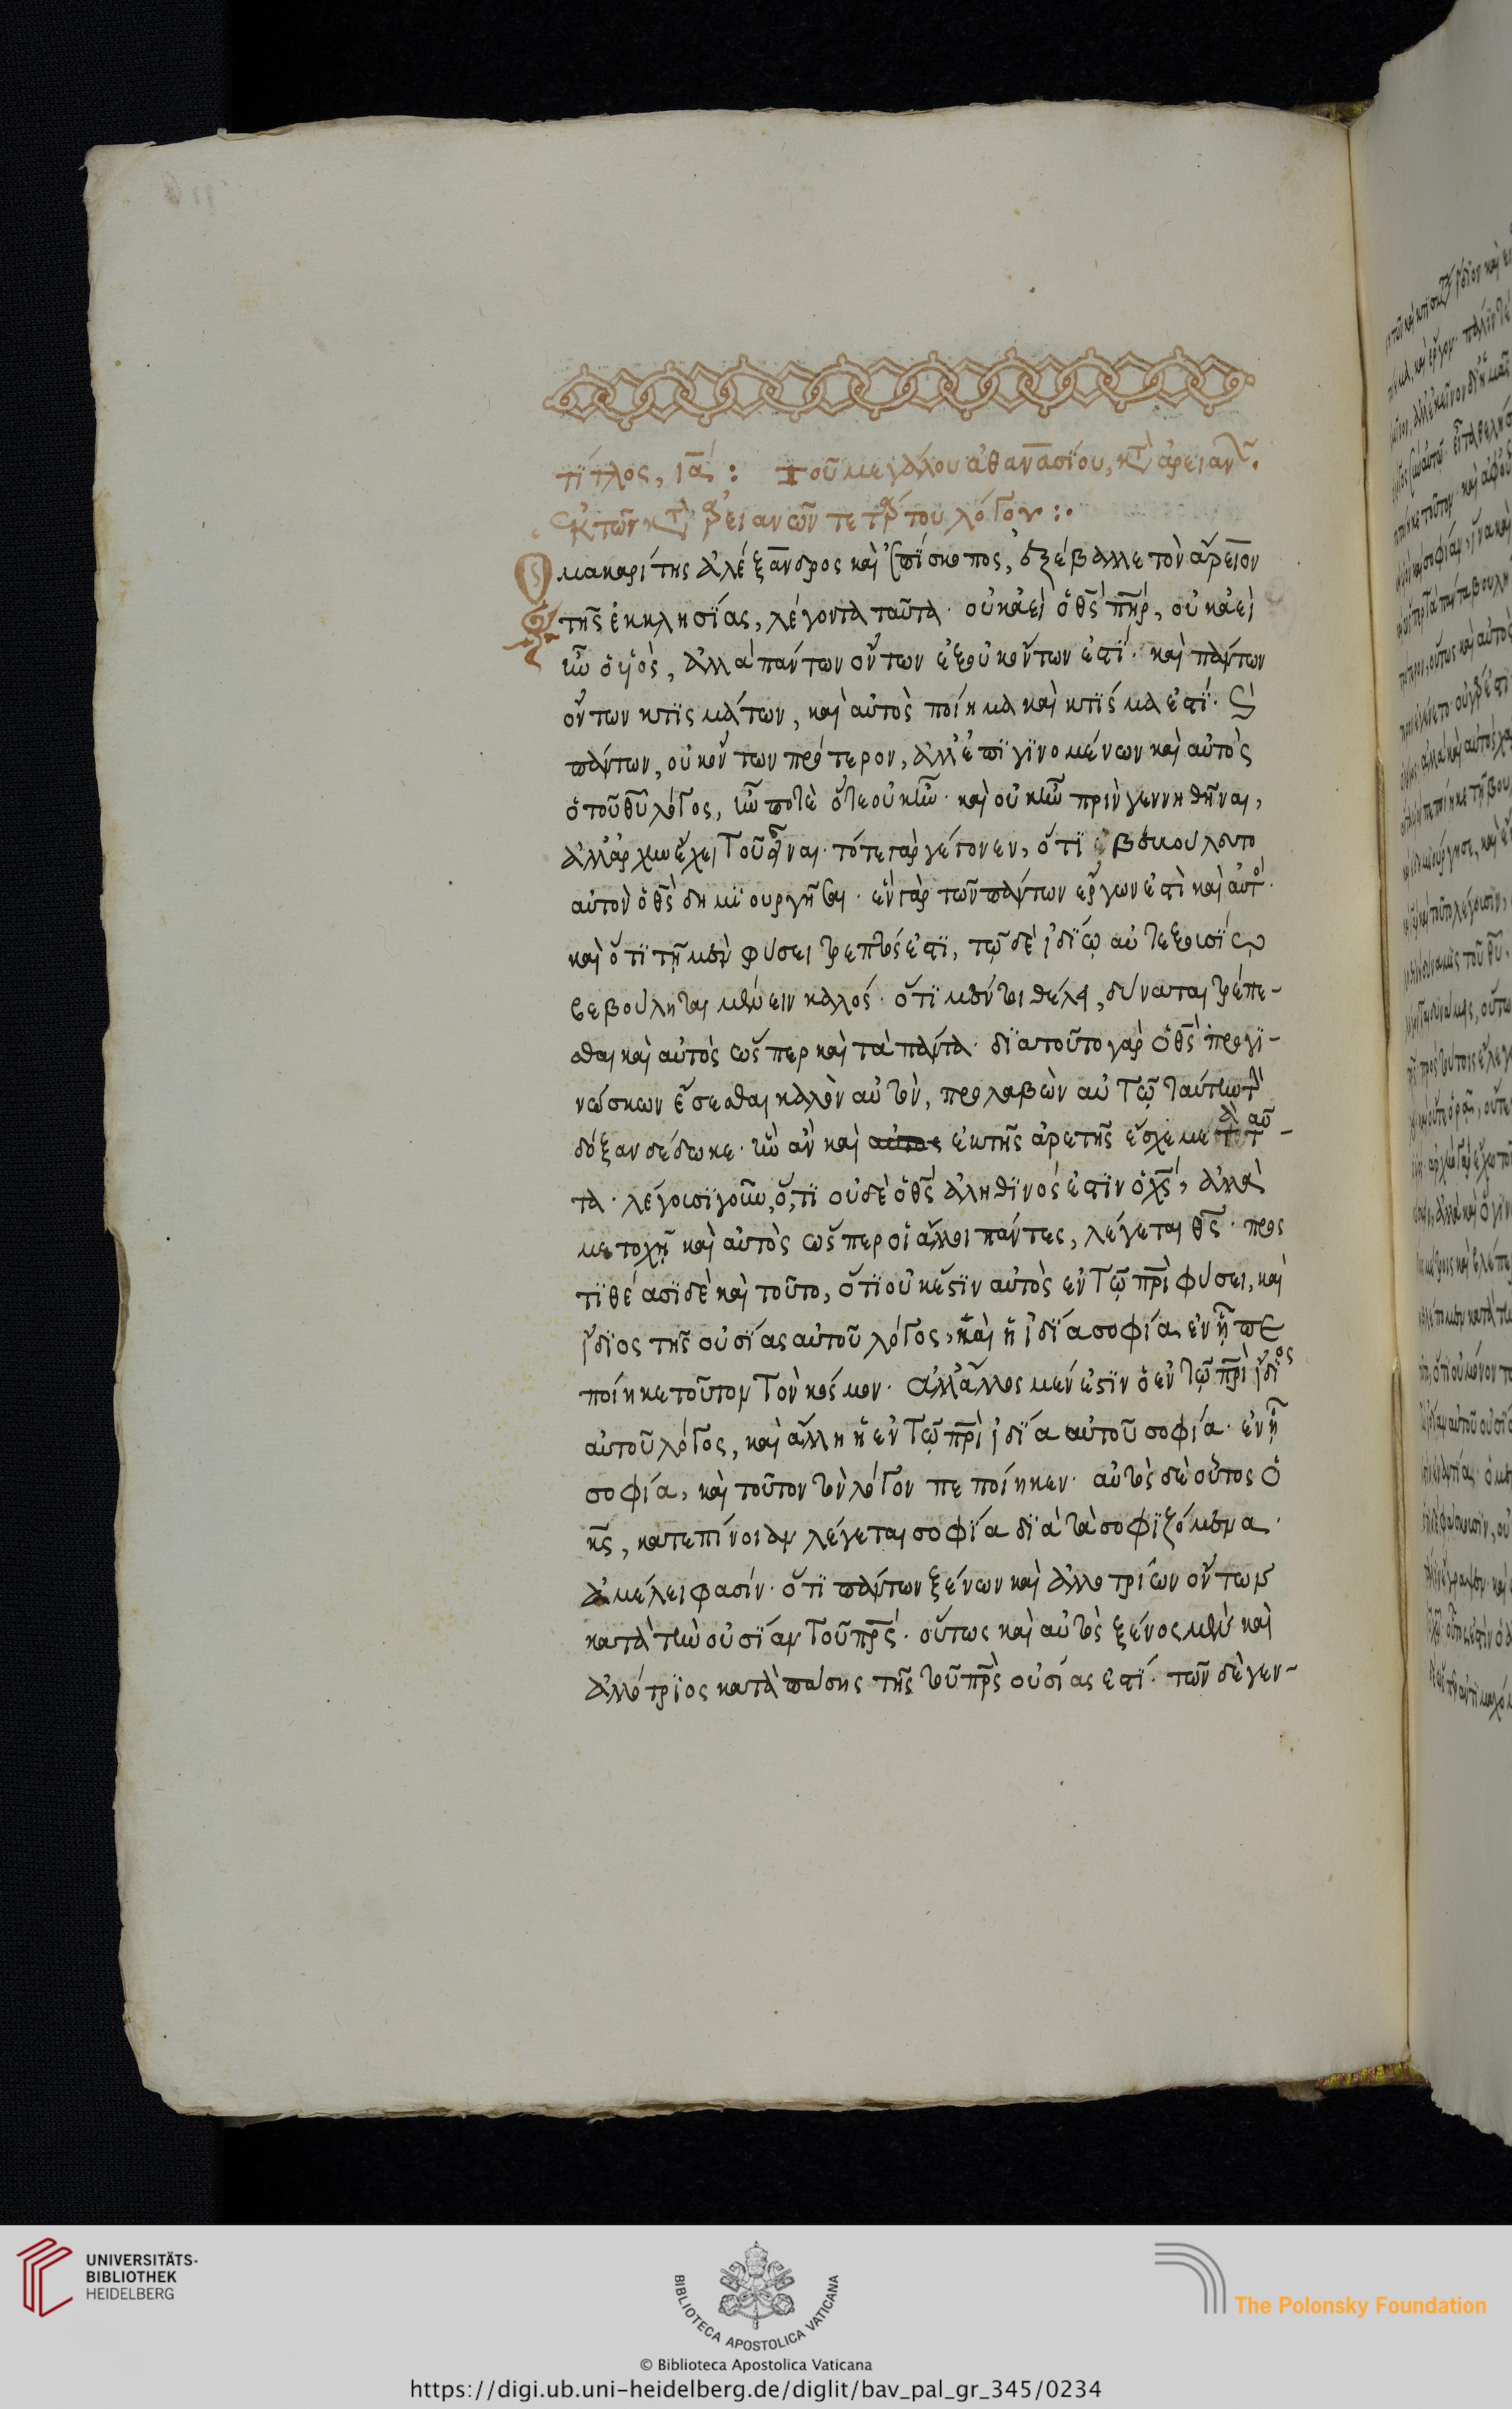 τίτλος, ια: τοῦ μεγάλου ἀθανασίου, κτ ἀρειαν.
ἐκ τῶν κτ ἀρειανῶν τετάρτου λόγου:
Ο μακαρίτης ἀλέξανδρος καὶ ἐπίσκοπος, ἐξέβαλλε τὸν ἄρειον
τῆς ἐκκλησίας, λέγοντα ταῦτα· οὐκ ἀεὶ ὁ θς πηρ, οὐκ ἀεὶ
ἦν ὁ υἱός, ἀλλὰ πάντων ὄντων ἐξ οὐκ ὄντων ἐστί· καὶ πάντων
ὄντων κτισμάτων, καὶ αὐτὸς ποίημα καὶ κτίσμα ἐστί·
πάντων, οὐκ ὄντων πρότερον, ἀλλ' ἐπιγινομένων καὶ αὐτὸς
ὁ τοῦ θυ λόγος, ἦν ποτὲ ὅτε οὐκ ἦν· καὶ οὐκ ἦν πρὶν γεννηθῆναι,
ἀλλ' ἀρχὴν ἔχει τοῦ εἶναι· τότε γὰρ γέγονεν, ὅτι βεβούλοντο
αὐτὸν ὁ θς δημιουργῆσαι· ἓν γὰρ τῶν πάντων ἔργων ἐστὶ καὶ αὐτό·
καὶ ὅτι τῇ μὲν φύσει τρεπτός ἐστι, τῷ δὲ ἰδίῳ αὐτεξουσίῳ
βεβούληται μένειν καλός· ὅτι μέντοι θέλῃ, δύναται τρέπε-
σθαι καὶ αὐτὸς ὥσπερ καὶ τὰ πάντα· διατοῦτο γὰρ ὁ θς προγι-
νώσκων ἔσεσθαι καλὸν αὐτόν, προλαβὼν αὐτῷ ταύτην τὴν
δόξαν δέδωκε· ἣν ἂν καὶ ἐκ τῆς ἀρετῆς ἔσχε μετὰ ταῦ-
τα· λέγουσι γοῦν, ὅτι οὐδὲ ὁ θς ἀληθινός ἐστιν ὁ χς, ἀλλὰ
μετοχῇ καὶ αὐτὸς ὥσπερ οἱ ἄλλοι πάντες, λέγεται θς· προς
τιθέασι δὲ καὶ τοῦτο, ὅτι οὐκ ἔστιν αὐτὸς ἐν τῷ πρὶ φύσει, καὶ
ἴδιος τῆς οὐσίας αὐτοῦ λόγος, καὶ ἡ ἰδία σοφία, ἐν ᾗ πε
ποίηκε τοῦτον τὸν κόσμον· ἀλλ' ἄλλος μέν ἐστιν ὁ ἐν τῷ πρὶ ἴδιος
αὐτοῦ λόγος, καὶ ἄλλη ἡ ἐν τῷ πρὶ ἰδία αὐτοῦ σοφία· ἐν ᾗ
σοφία, καὶ τοῦτον τὸν λόγον πεποίηκεν· αὐτὸς δὲ οὗτος ὁ
κς, κατεπίνοιαν λέγεται σοφία διὰ τὰ σοφιζόμενα·
ἀμέλει φασίν· ὅτι πάντων ξένων καὶ ἀλλοτρίων ὄντων
κατὰ τὴν οὐσίαν τοῦ πρς· οὕτως καὶ αὐτὸς ξένος μὲν καὶ
ἀλλότριος κατὰ πάσης τῆς τοῦ πρς οὐσίας ἐστί· τῶν δὲ γεν-
UNIVERSITÄTS-
BIBLIOTHEK
HEIDELBERG
BIBLIOTECA APOSTOLICA VATICANA
The Polonsky Foundation
© Biblioteca Apostolica Vaticana
https://digi.ub.uni-heidelberg.de/diglit/bav_pal_gr_345/0234